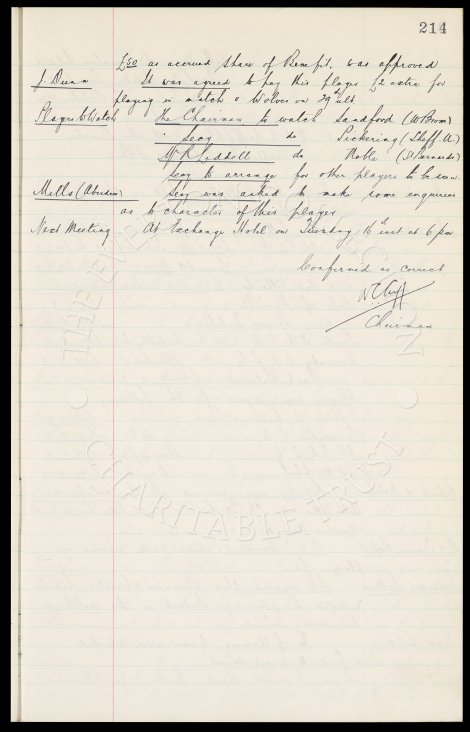 214
£50 as accrued share of Benefit, was approved
J. Dunn It was agreed to pay this player £2 extra for
playing in match v Wolves on 29th ult
Players to Watch The Chairman to watch Sandford (W Brom)
" Secy do Pickering (Sheff. U.)
Mr R. Liddell do Roble (St Bernards)
Secy to arrange for other players to be seen
Mills (Aberdeen) Secy was asked to make some enquiries
as to character of this player
Next Meeting At Exchange Hotel on Tuesday 16th inst at 6 pm
Confirmed as correct
W C Cuff
Chairman
THE EVERTON COLLECTION
CHARITABLE TRUST